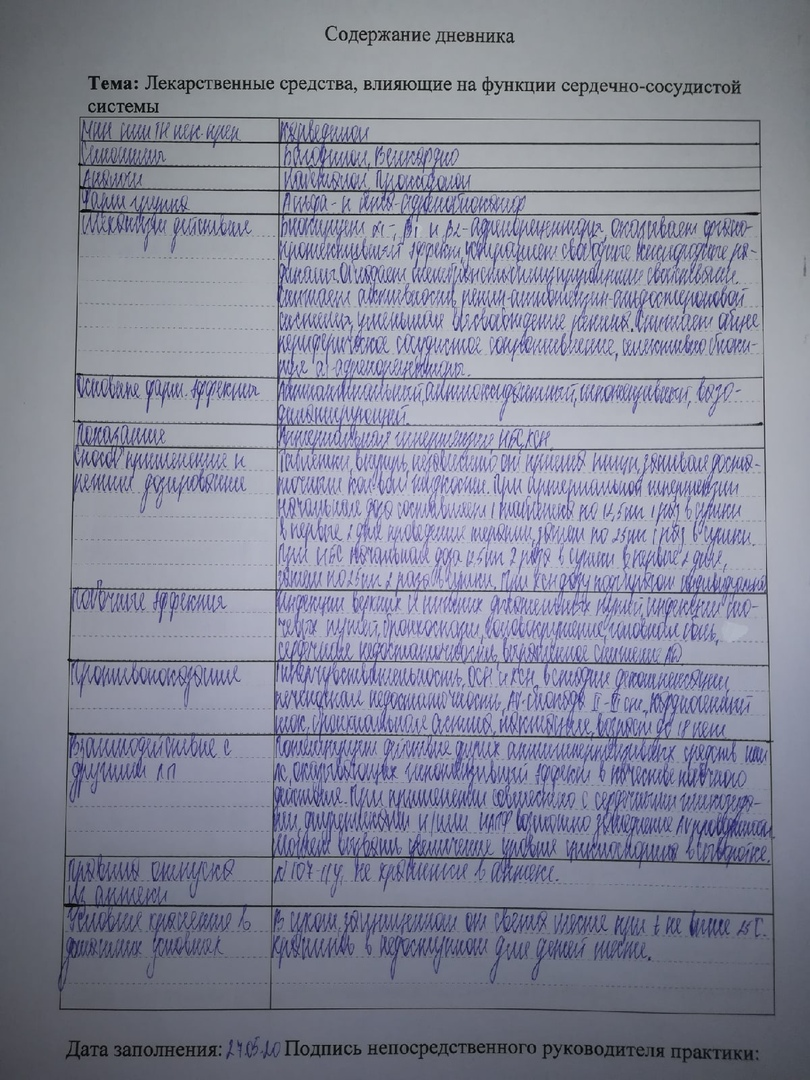 Содержание дневника
Тема: Лекарственные средства, влияющие на функции сердечно-сосудистой
системы
МНН или ТН
Карведилол
Синонимы
Багодилол, Ведикардио
Аналоги
Проксодолол
Фарм группа
Альфа- и бета-адреноблокатор
Механизм действия
Блокирует α1-, β1- и β2-адренорецепторы, оказывает органо-
протект эффект, устраняет свободные кислородные ра-
дикалы. Обладает мембраностабилизирующими свойствами.
Снижает активность ренин-ангиотензин-альдостероновой
системы, уменьшая высвобождение ренина. Снижает общее
периферическое сосудистое сопротивление, селективно блоки-
руя α1-адренорецепторы.
Основные фарм. эффекты
Антиангинальный, антиоксидантный, гипотензивный, вазо-
дилатирующий.
Показания
Артериальная гипертензия, ИБС, ХСН.
Способ применения и
режим дозирования
Таблетки, внутрь, независимо от приема пищи, запивая доста-
точным кол-вом жидкости. При артериальной гипертензии
начальная доза составляет 1 таблетка по 12,5 мг 1 р/д в сутки
в первые 2 дня проведения терапии, затем по 25 мг 1 р/д в сутки.
При ИБС начальная доза 12,5 мг 2 раза в сутки в первые 2 дня,
затем по 25 мг 2 раза в сутки. При ХСН дозу подбирают индивидуально
Побочные эффекты
Инфекции верхних и нижних дыхательных путей, инфекции мо-
чевых путей, бронхоспазм, головокружение, головная боль,
сердечная недостаточность, выраженное снижение АД
Противопоказания
Гиперчувствительность, ОСН и ХСН в стадии декомпенсации,
печеночная недостаточность, AV-блокада II-III ст, кардиогенный
шок, бронхиальная астма, возраст до 18 лет.
Взаимодействие с
другими ЛП
Потенцирует действие других антигипертензивных средств или
ЛС, оказывающих гипотензивный эффект в качестве побочного
действия. При применении совместно с сердечными гликозида-
ми, и/или возможно замедление AV проводимости.
Может вызвать увеличение уровня циклоспорина в сыворотке.
Правила отпуска
из аптеки
N 107-1/у. Не хранится в аптеке.
Условия хранения в
домашних условиях
В сухом, защищенном от света месте при t не выше 25 С.
Хранить в недоступном для детей месте.
Дата заполнения: 27.05.20 Подпись непосредственного руководителя практики: